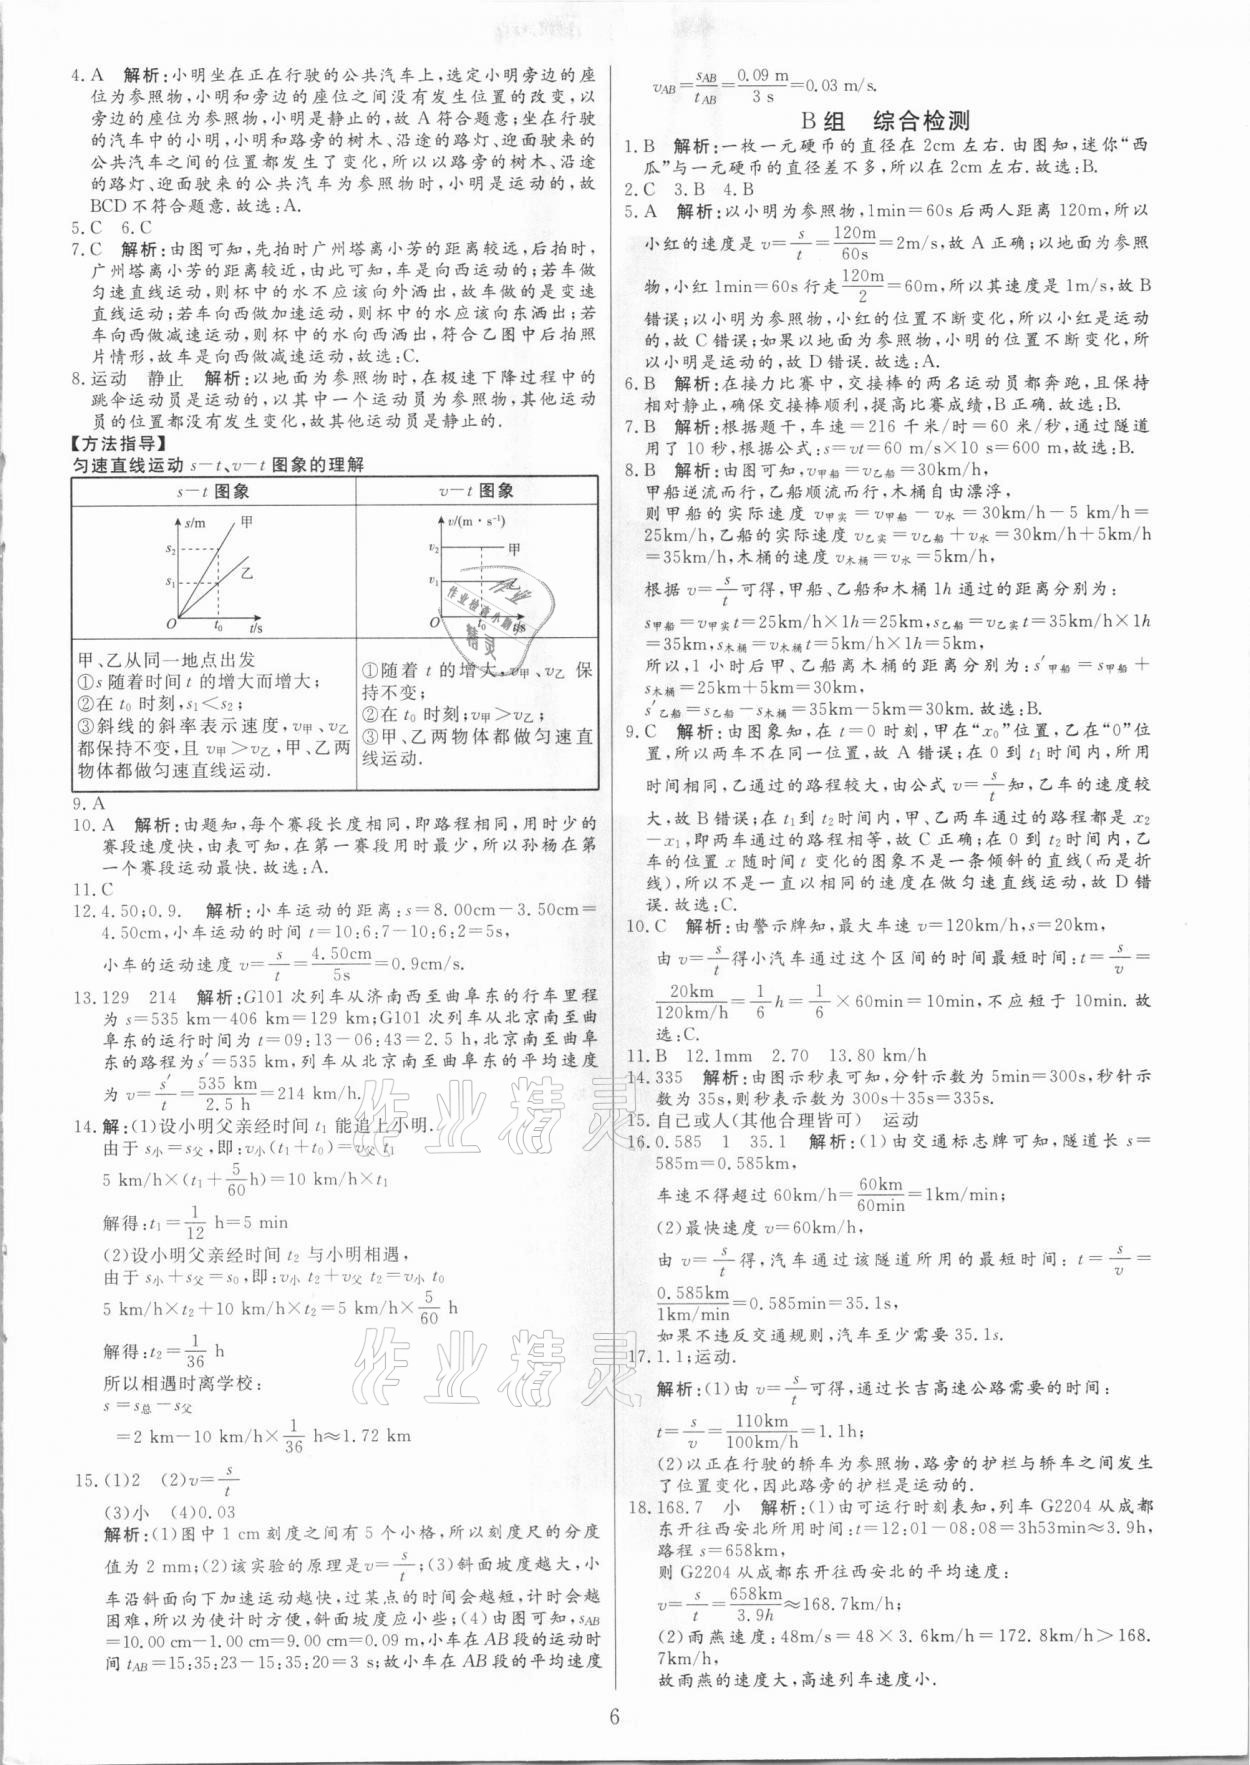 4.A　解析:小明坐在正在行驶的公共汽车上,选定小明旁边的座
位为参照物,小明和旁边的座位之间没有发生位置的改变,以
旁边的座位为参照物,小明是静止的,故 A 符合题意;坐在行驶
的汽车中的小明,小明和路旁的树木、沿途的路灯、迎面驶来的
公共汽车之间的位置都发生了变化,所以以路旁的树木、沿途
的路灯、迎面驶来的公共汽车为参照物时,小明是运动的,故
BCD不符合题意.故选:A.
5.C　6.C
7.C　解析:由图可知,先拍时广州塔离小芳的距离较远,后拍时,
广州塔离小芳的距离较近,由此可知,车是向西运动的;若车做
匀速直线运动,则杯中的水不应该向外洒出,故车做的是变速
直线运动;若车向西做加速运动,则杯中的水应该向东洒出;若
车向西做减速运动,则杯中的水向西洒出,符合乙图中后拍照
片情形,故车是向西做减速运动,故选:C.
8.运动　静止　解析:以地面为参照物时,在极速下降过程中的
跳伞运动员是运动的,以其中一个运动员为参照物,其他运动
员的位置都没有发生变化,故其他运动员是静止的.
【方法指导】
匀速直线运动 s－t、v－t 图象的理解
s－t 图象
s/m
甲
s2
乙
s1
O
t0
t/s
v－t 图象
v/(m·s⁻¹)
v2
甲
v1
O
t0
t/s
甲、乙从同一地点出发
①s 随着时间 t 的增大而增大;
②在 t0 时刻,s1＜s2;
③斜线的斜率表示速度,v甲、v乙
都保持不变,且 v甲＞v乙,甲、乙两
物体都做匀速直线运动.
①随着 t 的增大,v甲、v乙 保
持不变;
②在 t0 时刻;v甲＞v乙;
③甲、乙两物体都做匀速直
线运动.
9.A
10.A　解析:由题知,每个赛段长度相同,即路程相同,用时少的
赛段速度快,由表可知,在第一赛段用时最少,所以孙杨在第
一个赛段运动最快.故选:A.
11.C
12.4.50;0.9.　解析:小车运动的距离:s=8.00cm－3.50cm=
4.50cm,小车运动的时间 t=10:6:7－10:6:2=5s,
小车的运动速度 v=s/t=4.50cm/5s=0.9cm/s.
13.129　214　解析:G101 次列车从济南西至曲阜东的行车里程
为 s=535 km－406 km=129 km;G101 次列车从北京南至曲
阜东的运行时间为 t=09:13－06:43=2.5 h,北京南至曲阜
东的路程为 s′=535 km,列车从北京南至曲阜东的平均速度
为 v=s′/t=535 km/2.5 h=214 km/h.
14.解:(1)设小明父亲经时间 t1 能追上小明.
由于 s小=s父,即:v小(t1+t0)=v父 t1
5 km/h×(t1+5/60h)=10 km/h×t1
解得:t1=1/12 h=5 min
(2)设小明父亲经时间 t2 与小明相遇,
由于 s小+s父=s0,即:v小 t2+v父 t2=v小 t0
5 km/h×t2+10 km/h×t2=5 km/h×5/60 h
解得:t2=1/36 h
所以相遇时离学校:
s=s总－s父
=2 km－10 km/h×1/36 h≈1.72 km
15.(1)2　(2)v=s/t
(3)小　(4)0.03
解析:(1)图中 1 cm 刻度之间有 5 个小格,所以刻度尺的分度
值为 2 mm;(2)该实验的原理是v=s/t;(3)斜面坡度越大,小
车沿斜面向下加速运动越快,过某点的时间会越短,计时会越
困难,所以为使计时方便,斜面坡度应小些;(4)由图可知,sAB
=10.00 cm－1.00 cm=9.00 cm=0.09 m,小车在AB段的运动时
间 tAB=15:35:23－15:35:20=3 s;故小车在 AB 段的平均速度
vAB=sAB/tAB=0.09 m/3 s=0.03 m/s.
B 组　综合检测
1.B　解析:一枚一元硬币的直径在 2cm 左右.由图知,迷你“西
瓜”与一元硬币的直径差不多,所以在 2cm 左右.故选:B.
2.C　3.B　4.B
5.A　解析:以小明为参照物,1min=60s后两人距离 120m,所以
小红的速度是 v=s/t=120m/60s=2m/s,故 A 正确;以地面为参照
物,小红1min=60s行走120m/2=60m,所以其速度是 1m/s,故 B
错误;以小明为参照物,小红的位置不断变化,所以小红是运动
的,故 C 错误;如果以地面为参照物,小明的位置不断变化,所
以小明是运动的,故 D 错误.故选:A.
6.B　解析:在接力比赛中,交接棒的两名运动员都奔跑,且保持
相对静止,确保交接棒顺利,提高比赛成绩,B正确.故选:B.
7.B　解析:根据题干,车速=216 千米/时=60 米/秒,通过隧道
用了 10 秒,根据公式:s=vt=60 m/s×10 s=600 m,故选:B.
8.B　解析:由图可知,v甲船=v乙船=30km/h,
甲船逆流而行,乙船顺流而行,木桶自由漂浮,
则甲船的实际速度 v甲实=v甲船－v水=30km/h－5 km/h=
25km/h,乙船的实际速度 v乙实=v乙船+v水=30km/h+5km/h
=35km/h,木桶的速度 v木桶=v水=5km/h,
根据 v=s/t可得,甲船、乙船和木桶 1h 通过的距离分别为:
s甲船=v甲实t=25km/h×1h=25km,s乙船=v乙实t=35km/h×1h
=35km,s木桶=v木桶t=5km/h×1h=5km,
所以,1 小时后甲、乙船离木桶的距离分别为:s′甲船=s甲船+
s木桶=25km+5km=30km,
s′乙船=s乙船－s木桶=35km－5km=30km.故选:B.
9.C　解析:由图象知,在 t=0 时刻,甲在“x0”位置,乙在“0”位
置,所以两车不在同一位置,故 A 错误;在 0 到 t1时间内,所用
时间相同,乙通过的路程较大,由公式 v=s/t知,乙车的速度较
大,故 B 错误;在 t1到 t2时间内,甲、乙两车通过的路程都是 x2
－x1,即两车通过的路程相等,故 C 正确;在 0 到 t2时间内,乙
车的位置 x 随时间 t 变化的图象不是一条倾斜的直线(而是折
线),所以不是一直以相同的速度在做匀速直线运动,故 D 错
误.故选:C.
10.C　解析:由警示牌知,最大车速 v=120km/h,s=20km,
由 v=s/t得小汽车通过这个区间的时间最短时间:t=s/v=
20km/120km/h=1/6h=1/6×60min=10min,不应短于 10min.故
选:C.
11.B　12.1mm　2.70　13.80 km/h
14.335　解析:由图示秒表可知,分针示数为5min=300s,秒针示
数为 35s,则秒表示数为 300s+35s=335s.
15.自己或人(其他合理皆可)　运动
16.0.585　1　35.1　解析:(1)由交通标志牌可知,隧道长 s=
585m=0.585km,
车速不得超过 60km/h=60km/60min=1km/min;
(2)最快速度 v=60km/h,
由 v=s/t得,汽车通过该隧道所用的最短时间:t=s/v=
0.585km/1km/min=0.585min=35.1s,
如果不违反交通规则,汽车至少需要 35.1s.
17.1.1;运动.
解析:(1)由 v=s/t可得,通过长吉高速公路需要的时间:
t=s/v=110km/100km/h=1.1h;
(2)以正在行驶的轿车为参照物,路旁的护栏与轿车之间发生
了位置变化,因此路旁的护栏是运动的.
18.168.7　小　解析:(1)由可运行时刻表知,列车 G2204 从成都
东开往西安北所用时间:t=12:01－08:08=3h53min≈3.9h,
路程 s=658km,
则 G2204 从成都东开往西安北的平均速度:
v=s/t=658km/3.9h≈168.7km/h;
(2)雨燕速度:48m/s=48×3.6km/h=172.8km/h＞168.
7km/h,
故雨燕的速度大,高速列车速度小.
6
作业精灵
作业精灵
作业
作业检查小助手
精灵